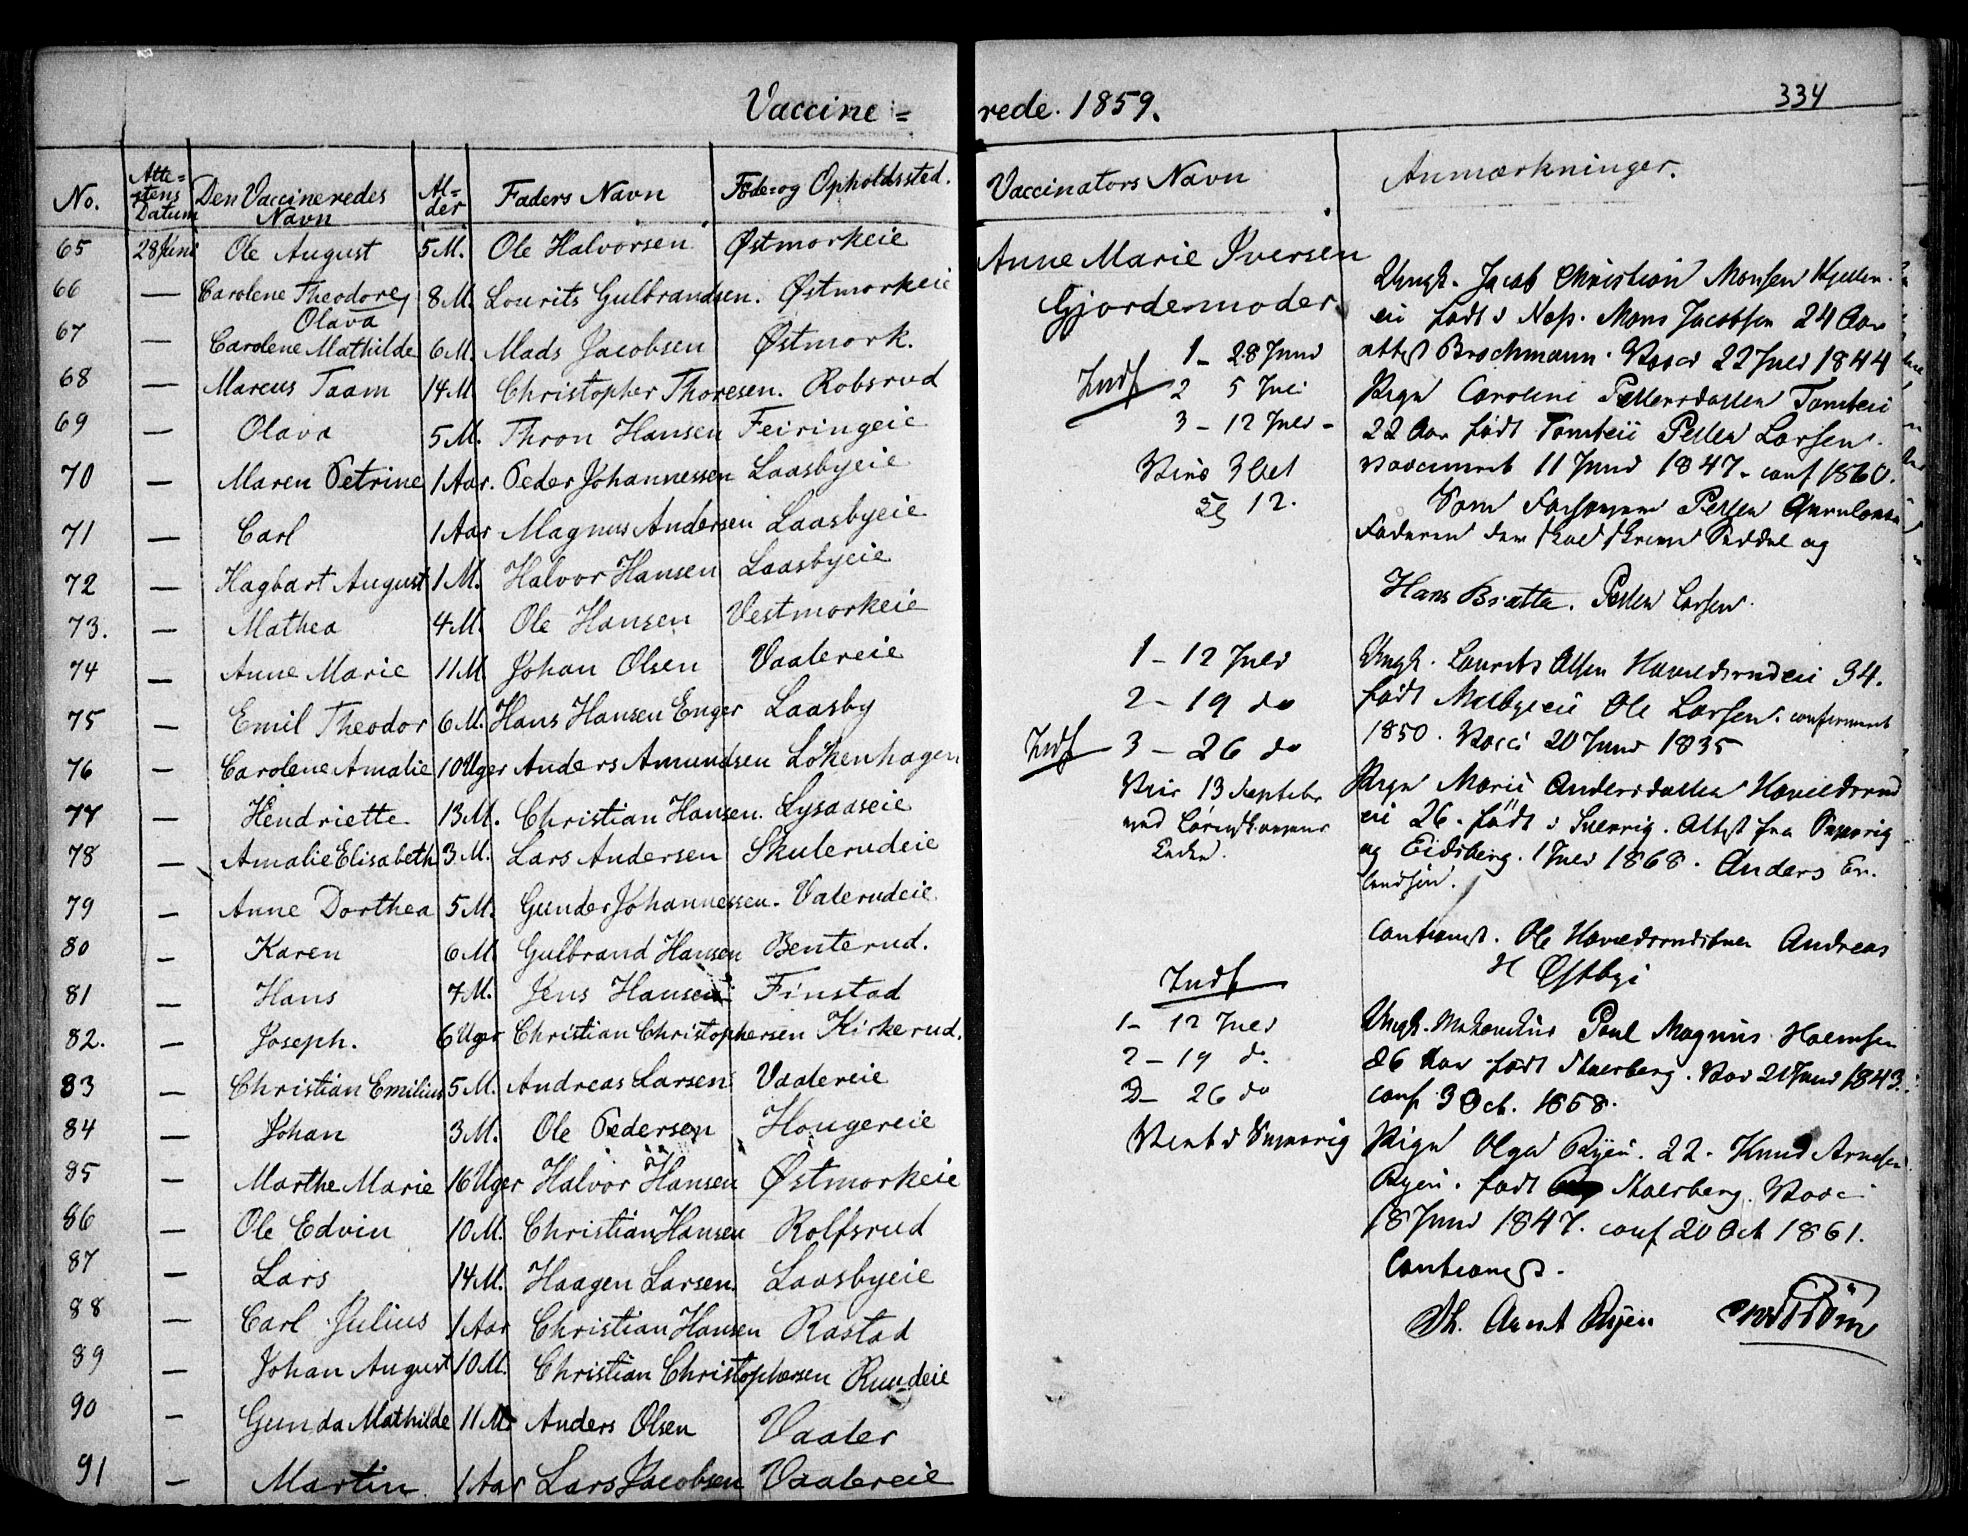 Vaccine = rede. 1859.
334
No. | Atte=stens Datum | Den Vaccineredes Navn | Al=der | Faders Navn | Føde= og Opholdssted. | Vaccinators Navn | Anmærkninger.
65 28 Juni Ole August 5 M. Ole Halvorsen Østmorkeie
66 — Carolene Theodore Olava 8 M. Lourits Gulbrandsen. Østmorkeie
67 — Carolene Mathilde 6 M. Mads Jacobsen Østmork.
68 — Marcus Taam 14 M. Christopher Thoresen. Robsrud
69 — Olava 5 M. Thron Hansen Feiringeie
70 — Maren Petrine 1 Aar. Peder Johannessen Laasbyeie
71 — Carl 1 Aar Magnus Andersen Laasbyeie
72 — Hagbart August 1 M. Halvor Hansen Laasbyeie
73. — Mathea 4 M. Ole Hansen Vestmorkeie
74 — Anne Marie 11 M. Johan Olsen Vaalereie
75 — Emil Theodor 6 M. Hans Hansen Enger Laasby
76 — Carolene Amalie 10 Uger Anders Amundsen Lökenhagen
77 — Hendriette 13 M. Christian Hansen. Lysaaseie
78 — Amalie Elisabeth 3 M. Lars Andersen Skulerudeie
79 — Anne Dorthea 5 M. Gunder Johannessen. Valerudeie.
80 — Karen 6 M. Gulbrand Hansen Benterud.
81 — Hans 7 M. Jens Hansen Finstad
82. — Joseph. 6 Uger Christian Christophersen Kirkerud.
83 — Christian Emilius 5 M. Andreas Larsen Vaalereie
84 — Johan 3 M. Ole Pedersen Hougereie
85 — Marthe Marie 16 Uger Halvor Hansen Østmorkeie
86 — Ole Edvin 10 M. Christian Hansen Rolfsrud
87 — Lars 14 M. Haagen Larsen. Laasbyeie
88 — Carl Julius 1 Aar Christian Hansen Rastad
89 — Johan August 10 M. Christian Christophersen Ruudeie
90 — Gunda Mathilde 11 M. Anders Olsen Vaaler
91 — Martin 1 Aar Lars Jacobsen Vaalereie
Anne Marie Iversen
Gjordemoder
1 - 28 Juni
Indf 2 5 Juli
3 - 12 Juli -
Viius 3 Oct
12.
1 - 12 Juli
2 - 19 do
Indf 3 - 26 do
Viir 13 Septebr
Indf
1 - 12 Juli
2 - 19 do
26 do
Ungk. Jacob Christian Monsen
eie født i Næs. Mons Jacobsen 24 Aar
attest Brochmann. Vacci 22 Juli 1844
Pige Caroline Pettersdatter Tomteie
22 Aar født Tomteie Petter Larsen.
vaccineret 11 Juni 1847. conf 1860.
Som Forlovere Petter
Faderen der skal skrive Seddel og
Hans Bratte. Petter Larsen.
Ungk. Laurits Olsen Haveldsrudeie 34.
født Melbyeie Ole Larsen. confirmeret
1850. Vacci 20 Juni 1835
Pige Marie Andersdatter Haveldsrud
eie 26. født i Sverrig. Attest fra Sverrig
og Eidsberg. 1 Juli 1868. Anders Er.
landsen.
Cautionist. Ole Haveldsrudstuen Andreas
H Østbye
Ungk. Poul Magnus Halmsen
26 Aar født Skaerberg. Vac 21 Juni 1843.
conf 3 Oct. 1858.
Pige Olga Ryen. 22. Knud Arnesen
Ryen. født Skaerberg. Vacc
18 Juni 1847. conf 20 Oct 1861.
Cautionist.
Th. Arent Ryen